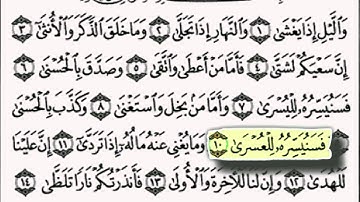 وَٱلَّيْلِ إِذَا يَغْشَىٰ ١ وَٱلنَّهَارِ إِذَا تَجَلَّىٰ ٢ وَمَا خَلَقَ ٱلذَّكَرَ وَٱلْأُنثَىٰ ٣
إِنَّ سَعْيَكُمْ لَشَتَّىٰ ٤ فَأَمَّا مَنْ أَعْطَىٰ وَٱتَّقَىٰ ٥ وَصَدَّقَ بِٱلْحُسْنَىٰ ٦
فَسَنُيَسِّرُهُۥ لِلْيُسْرَىٰ ٧ وَأَمَّا مَنۢ بَخِلَ وَٱسْتَغْنَىٰ ٨ وَكَذَّبَ بِٱلْحُسْنَىٰ
فَسَنُيَسِّرُهُۥ لِلْعُسْرَىٰ ١٠ وَمَا يُغْنِى عَنْهُ مَالُهُۥٓ إِذَا تَرَدَّىٰٓ ١١ إِنَّ عَلَيْنَا
لَلْهُدَىٰ ١٢ وَإِنَّ لَنَا لَلْـَٔاخِرَةَ وَٱلْأُولَىٰ ١٣ فَأَنذَرْتُكُمْ نَارًا تَلَظَّىٰ ١٤